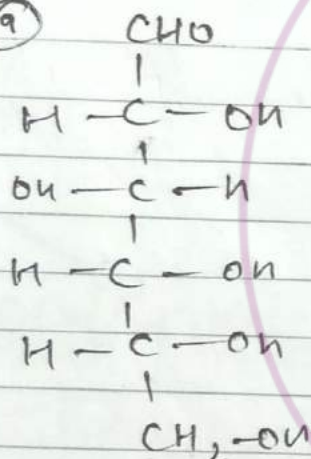 9
CHO
H - C - OH
OH - C - H
H - C - OH
H - C - OH
CH2-OH